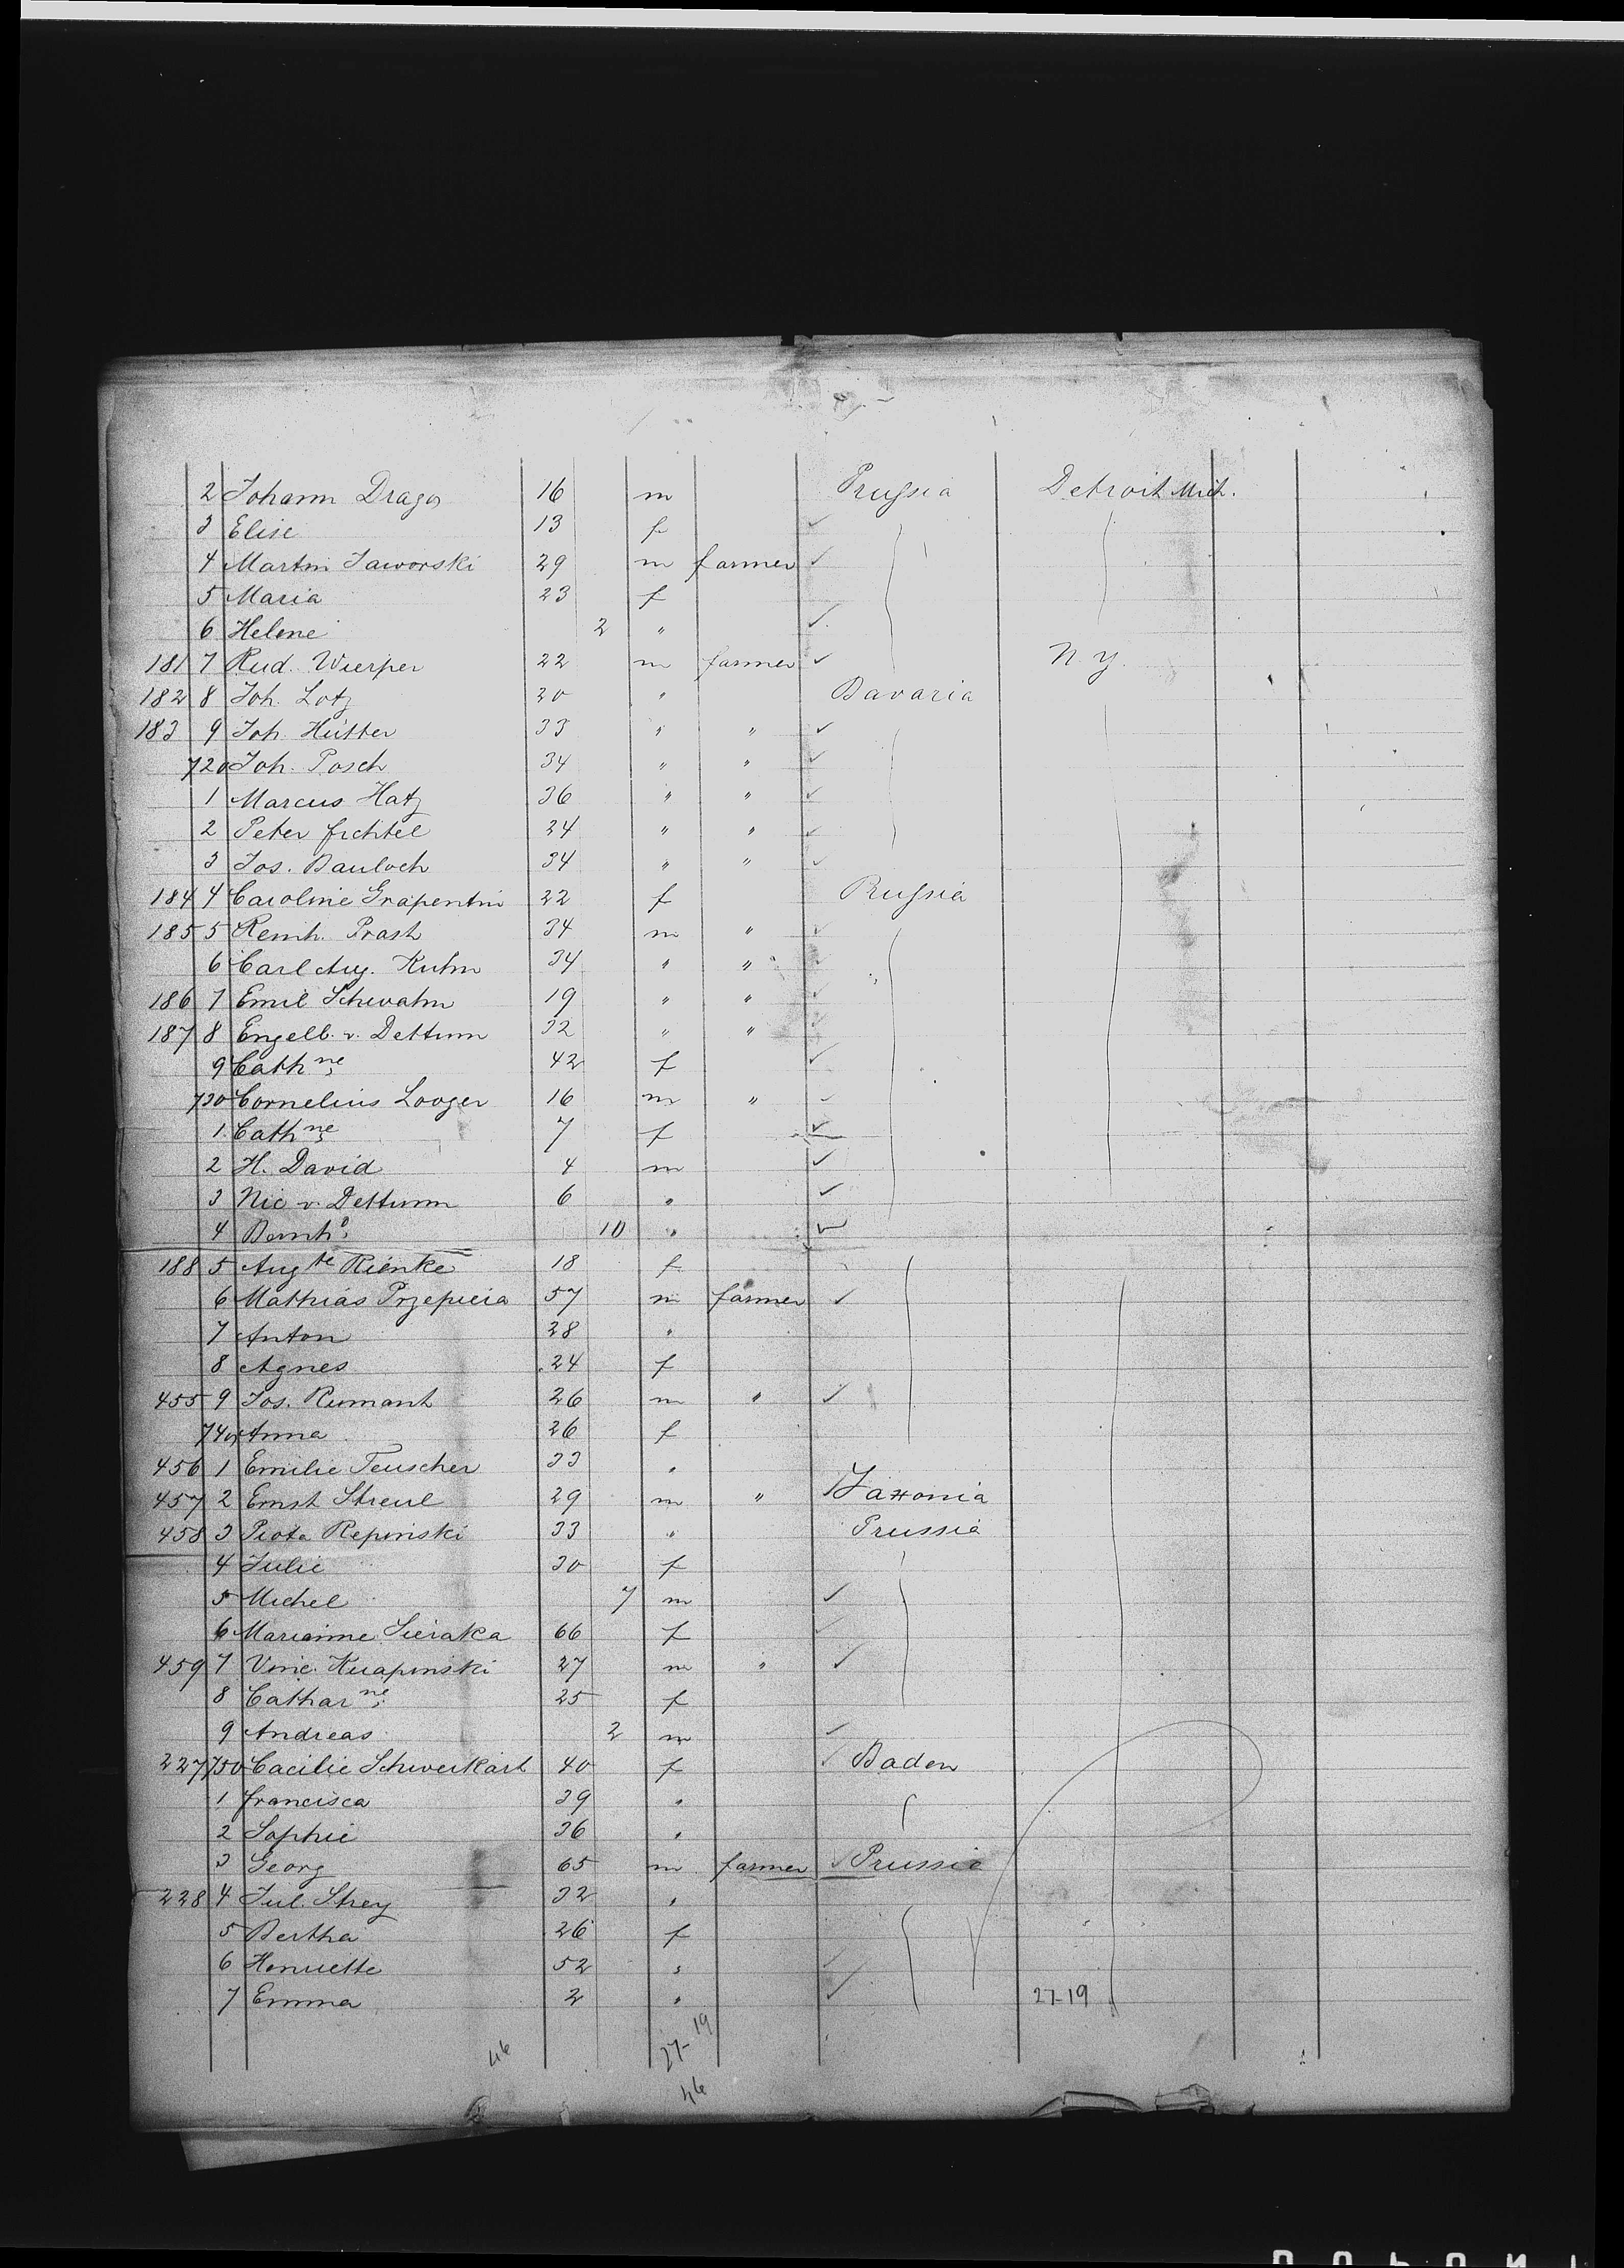 2 Johann Dragos 16 m Prussia Detroit Mich.
3 Elise 13 f
4 Martin Jaworski 29 m farmer
5 Maria 23 f
6 Helene 2 "
181 7 Rud. Wierper 22 m farmer N. Y.
182 8 Joh. Lotz 30 " Bavaria
183 9 Joh. Hütter 33 " "
720 Joh. Posch 34 " "
1 Marcus Hatz 36 " "
2 Peter Fichtel 34 " "
3 Jos. Bauloch 34 " "
184 4 Caroline Grapentin 22 f Prussia
185 5 Reinh. Prash 34 m "
6 Carl Aug. Kuhn 34 " "
186 7 Emil Schwahn 19 " "
187 8 Engelb. v. Dettum 32 " "
9 Cathne 42 f
730 Cornelius Looger 16 m "
1 Cathne 7 f
2 H. David 4 m
3 Nic v. Dettumm 6 "
4 Bernhd 10 "
188 5 Augte Rienke 18 f
6 Mathias Przepieia 57 m farmer
7 Anton 28 "
8 Agnes 24 f
455 9 Jos. Rumanh 26 m "
740 Anna 26 f
456 1 Emilie Teuscher 33 "
457 2 Ernst Streul 29 m " Saxonia
458 3 Piota Repinski 33 " Prussia
4 Julie 30 f
5 Michel 7 m
6 Marianne Sieraka 66 f
459 7 Vinc. Kuapinski 27 m "
8 Catharne 25 f
9 Andreas 2 m
227 750 Cacilie Schweikart 40 f Baden
1 Francisca 39 "
2 Sophie 36 "
3 Georg 65 m farmer Prussia
228 4 Jul. Strey 32 "
5 Bertha 26 f
6 Henriette 52 "
7 Emma 2 " 27-19
46 27-19
46